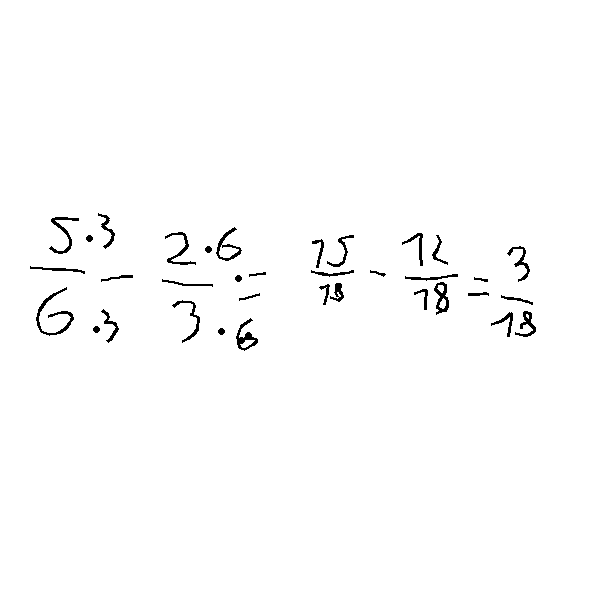 5·3/6·3 - 2·6/3·6 = 15/18 - 12/18 = 3/18